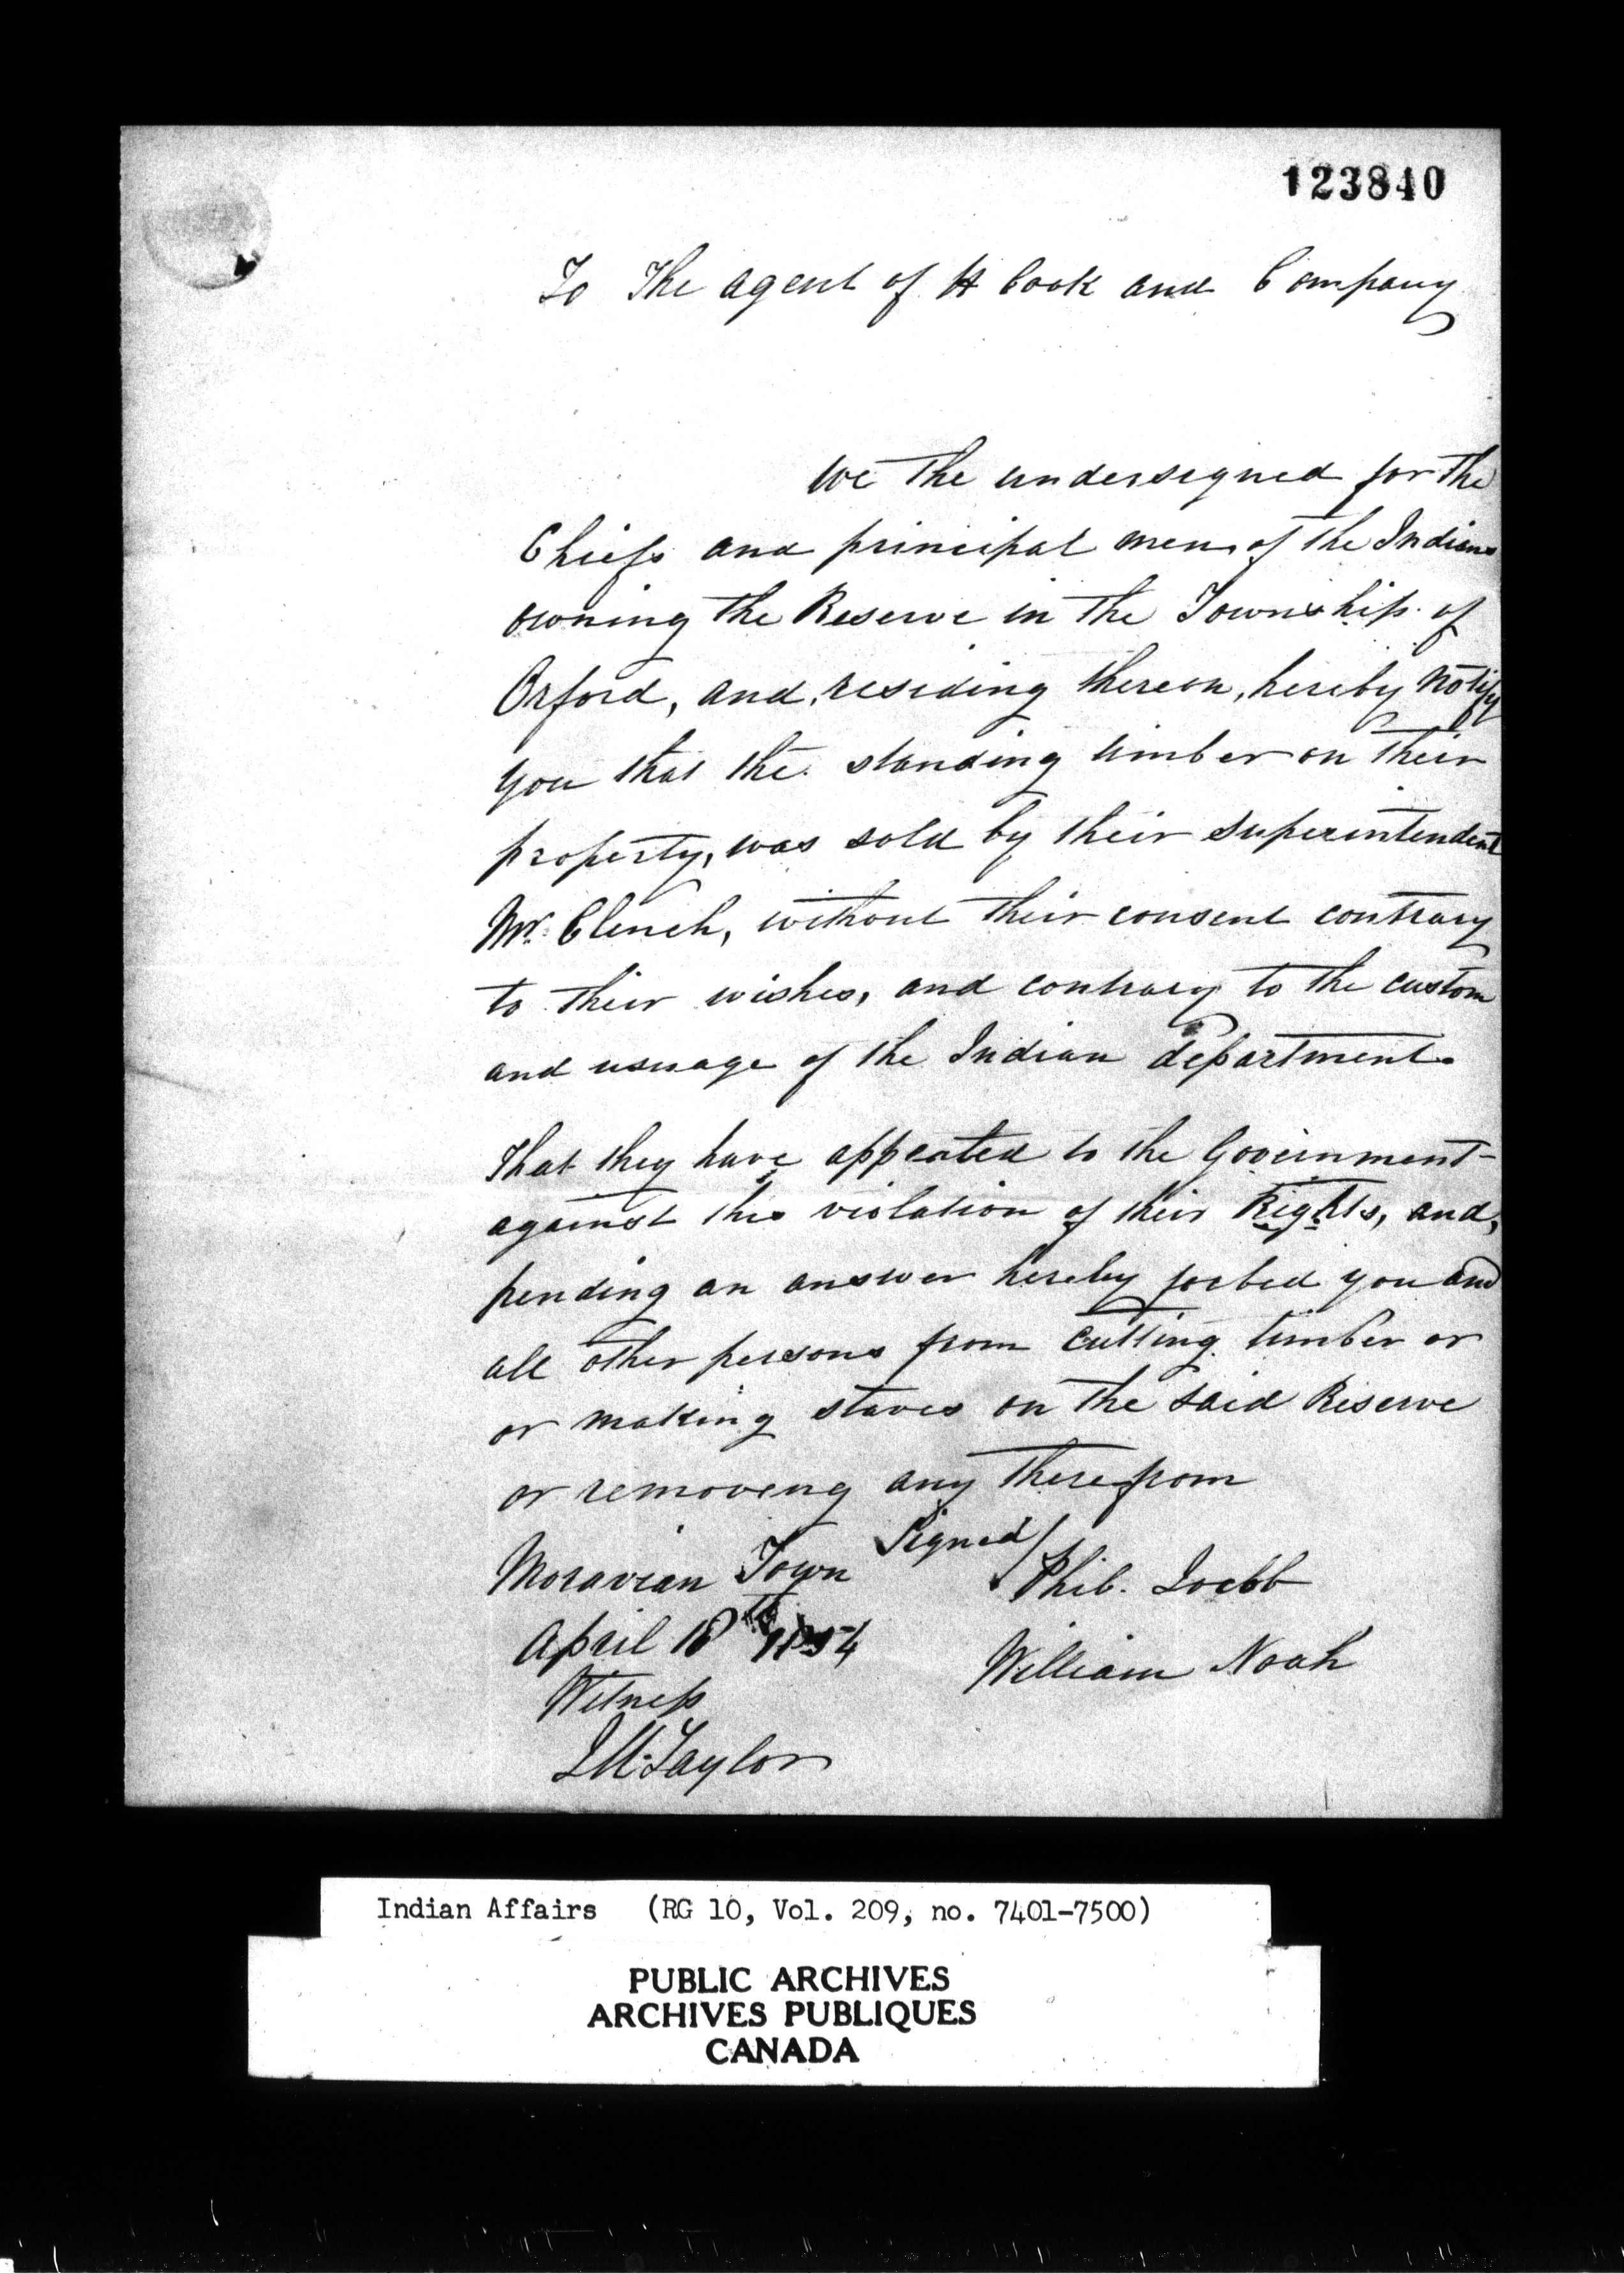 123840
To The agent of H Cook and Company
We the undersigned for the
Chiefs and principal men of the Indians
owning the Reserve in the Township of
Orford, and residing thereon, hereby Notify
you that the standing timber on their
property, was sold by their superintendent
Mr. Clench, without their consent contrary
to their wishes, and contrary to the custom
and usuage of the Indian department.
That they have appealed to the Government
against this violation of their Rights, and,
pending an answer hereby forbid you and
all other persons from cutting timber or
or making staves on the said Reserve
or removeng any therefrom
Signed/
Moravian Town Phil.
April 18th 1854
William Noah
Witness
J M Taylor
Indian Affairs (RG 10, Vol. 209, no. 7401-7500)
PUBLIC ARCHIVES
ARCHIVES PUBLIQUES
CANADA